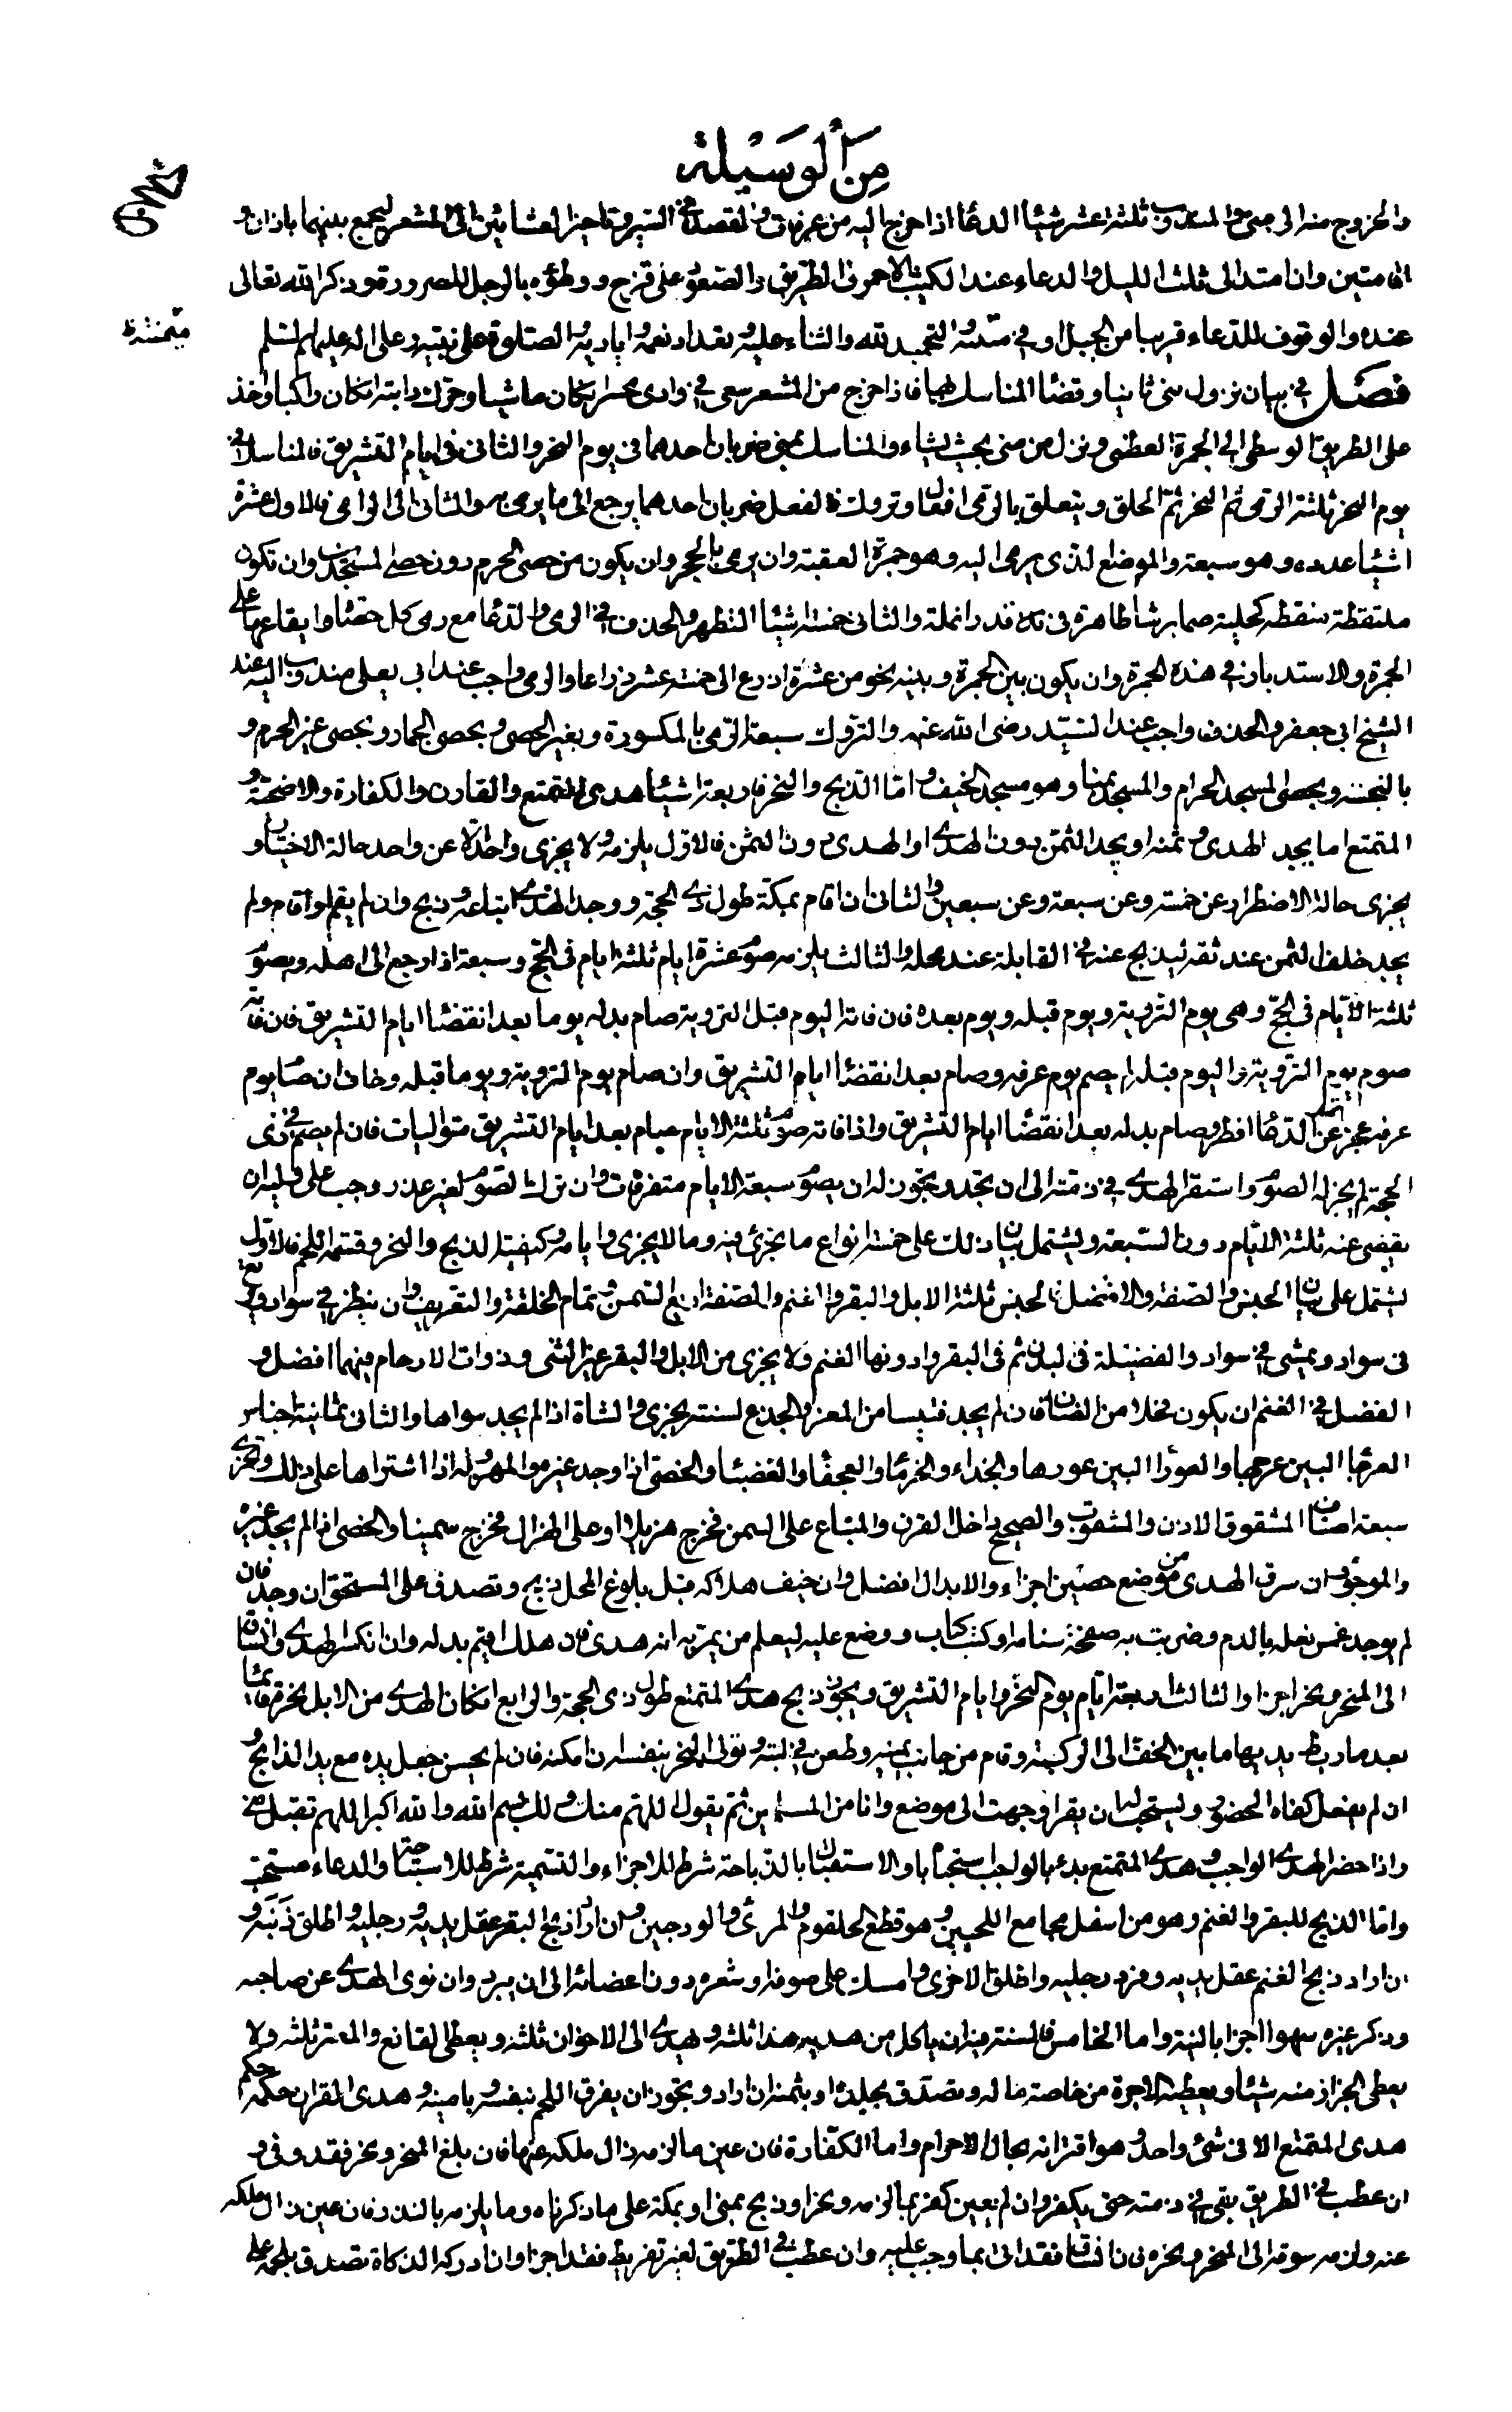 مِنَ الوَسيلة
والخروج منه الى منى والمندوب ثلثة عشر شيئا الدعاء اذا خرج اليه من عرفات والقصد في السير وتاخير العشائين الى المشعر ليجمع بينهما باذان و
اقامتين وان امتد الى ثلث الليل والدعاء عند الكثيب الاحمر في الطريق والصعود على قزح ووطؤه بالرجل للصرورة وذكر الله تعالى
عنده والوقوف للدعاء قريبا من الجبل او في التحميد لله والثناء عليه وتعداد نعمه واياديه والصلوة على نبيه وعلى اله عليهم السلم
فصل في بيان نزول منى ثانيا وقضاء المناسك بها فاذا خرج من المشعر سعى في وادى محسر ان كان ماشيا وحرك دابته ان كان راكبا واخذ
على الطريق الوسطى الى الجمرة العظمى ونزل من منى بحيث يشاء والمناسك بمنى ضربان احدهما في يوم النحر والثانى في ايام التشريق فالمناسك في
يوم النحر ثلثة الرمى ثم النحر ثم الحلق ويتعلق بالرمى افعال وتروك فالفعل ضربان احدهما يرجع الى ما يرمى به والثانى الى الرامى فالاول عشرة
اشياء عدده وهو سبعة والموضع الذى يرمى اليه وهو جمرة العقبة وان يرمى بالحجر وان يكون من حصى الحرم دون حصى المسجدين وان تكون
ملتقطة منقطة كحلية صما برشا طاهرة في قدر انملة والثانى خمسة اشياء التطهر والحذف في الرمى والدعاء مع رمى كل حصاة وايقاعها على
الجمرة والاستدبار في هذه الجمرة وان يكون بين الجمرة وبينه نحو من عشرة اذرع الى خمسة عشر ذراعا والرمى واجب عند ابى يعلى مندوب اليه عند
الشيخ ابى جعفر والحذف واجب عند السيد رضى الله عنه والتروك سبعة الرمى بالمكسورة وبغير الحصى وبحصى الجمار وبحصى غير الحرم و
بالنجسة وبحصى المسجد الحرام والمسجد بمنا وهو مسجد الخيف واما الذبح والنحر فاربعة اشياء هدى المتمتع والقارن والكفارة والاضحية و
المتمتع اما يجد الهدى وثمنه او يجد الثمن دون الهدى او الهدى دون الثمن فالاول يلزمه ولا يجزى واحد الا عن واحد حالة الاختيار و
يجزى حالة الاضطرار عن خمسة وعن سبعة وعن سبعين والثانى ان اقام بمكة طول ذى الحجة ووجد الهدى ابتاعه وذبح وان لم يقم او اقام ولم
يجد خلف الثمن عند ثقة ليذبح عنه في القابلة عند محله والثالث يلزمه صوم عشرة ايام ثلثة ايام في الحج وسبعة اذا رجع الى اهله ويصوم
ثلثة الايام في الحج وهى يوم التروية ويوم قبله ويوم بعده فان فاته اليوم قبل التروية صام بدله يوما بعد انقضاء ايام التشريق فان فاته
صوم يوم التروية واليوم قبله لم يصم يوم عرفة وصام بعد انقضاء ايام التشريق وان صام يوم التروية ويوما قبله وخاف ان صام يوم
عرفة عجز عن الدعاء افطر وصام بدله بعد انقضاء ايام التشريق واذا فاته صوم ثلثة الايام صام بعد ايام التشريق متواليات فان لم يصم في ذى
الحجة لم يجز له الصوم واستقر الهدى في ذمته الى ان يجد ويجوز له ان يصوم سبعة الايام متفرقات وان ترك الصوم لغير عذر وجب على وليه ان
يقضى عنه ثلثة الايام دون السبعة ويشتمل بيان ذلك على خمسة انواع ما يجزى فيه وما لا يجزى وايامه وكيفية الذبح والنحر وقسمة اللحم فالاول
يشتمل على بيان الجنس والصفة والافضل فالجنس ثلثة الابل والبقر والغنم والصفة اربع السمن وتمام الخلقة والتعريف وان ينظر في سواد ويرتع
في سواد ويمشى في سواد والفضيلة في البدن ثم في البقر وادونها الغنم ولا يجزى من الابل والبقر غير الثنى وذوات الارحام منهما افضل و
الفضل في الغنم ان يكون فحلا من الضان فان لم يجد فتيسا من المعز والجذع لسنته يجزى والشاة اذا لم يجد سواها والثانى ثمانية اجناس
العرجا البين عرجها والعورا البين عورها والجذاء والخرما والعجفا والغضبا والخصى اذا وجد غيره والمهزولة اذا اشتراها على ذلك وتجزى
سبعة اصناف المشقوق الاذن والمثقوب والصحيح داخل القرن والمبتاع على السمن فخرج هزيلا او على الهزال فخرج سمينا والخصى اذا لم يجد غيره
والموجوء وان سرق الهدى من موضع حصين اجزاء والابدال افضل وان خيف هلاكه قبل بلوغ المحل ذبح وتصدق على المستحق ان وجد فان
لم يوجد غمس نعله بالدم وضربت به صفحة سنامه او كتب كتاب ووضع عليه ليعلم من يمر به انه هدى فان هلك اقيم بدله وان انكسر الهدى وانساق
الى المنحر ونحر اجزا والثالث اربعة ايام يوم النحر وايام التشريق ويجوز ذبح هدى المتمتع طول ذى الحجة والرابع ان كان الهدى من الابل نحره قائما
بعد ما ربط يديها ما بين الخف الى الركبة وقام من جانب يمينه وطعن في لبته وتولى النحر بنفسه ان امكنه فان لم يحسن جعل يده مع يد الذابح و
ان لم يفعل كفاه الحضور ويستحب ان يقرا وجهت الى موضع وانا من المسلمين ثم يقول اللهم منك ولك بسم الله والله اكبر اللهم تقبل منى
واذا حضر الهدى الواجب وهدى المتمتع بدء بالواجب استحبابا والاستقبال بالذباحة شرط للاجزاء والتسمية شرط للاستباحة والدعاء مستحب
واما الذبح للبقر والغنم وهو من اسفل مجامع اللحيين وهو قطع الحلقوم والمرئ والودجين وان اراد ذبح البقر عقل يديه ورجليه واطلق ذنبه و
ان اراد ذبح الغنم عقل يديه وفرد رجليه واطلق الاخرى وامسك على صوفه او شعره دون اعضائه الى ان يبرد وان نوى الهدى عن صاحبه
وذكر غيره سهوا اجزا بالنية واما الخامس فالسنة فيه ان ياكل من هديه هذا ثلثه ويهدى الى الاخوان ثلثه ويعطى القانع والمعتر ثلثه ولا
يعطى الجزار منه شيئا ويعطيه الاجرة من خاصة ماله وتصدق بجلده او بثمنه ان اراد ويجوز ان يفرق اللحم بنفسه وبامينه وهدى القران حكمه حكم
هدى المتمتع الا في شئ واحد وهو اقترانه بحال الاحرام واما الكفارة فان عين ما لزمه زال ملكه عنها فان بلغ المنحر ونحر فقد وفى و
ان عطب في الطريق بقى في ذمته حتى يكفر وان لم يعين كفر بما لزمه ونحر او ذبح بمنى او بمكة على ما ذكرناه وما يلزمه بالنذر فان عين زال ملكه
عنه ولزمه سوقه الى المنحر ونحره فان انساق فقد اتى بما وجب عليه وان عطب في الطريق لغير تفريط فقد اجزا وان ادركه الذكاة تصدق بلحمه على